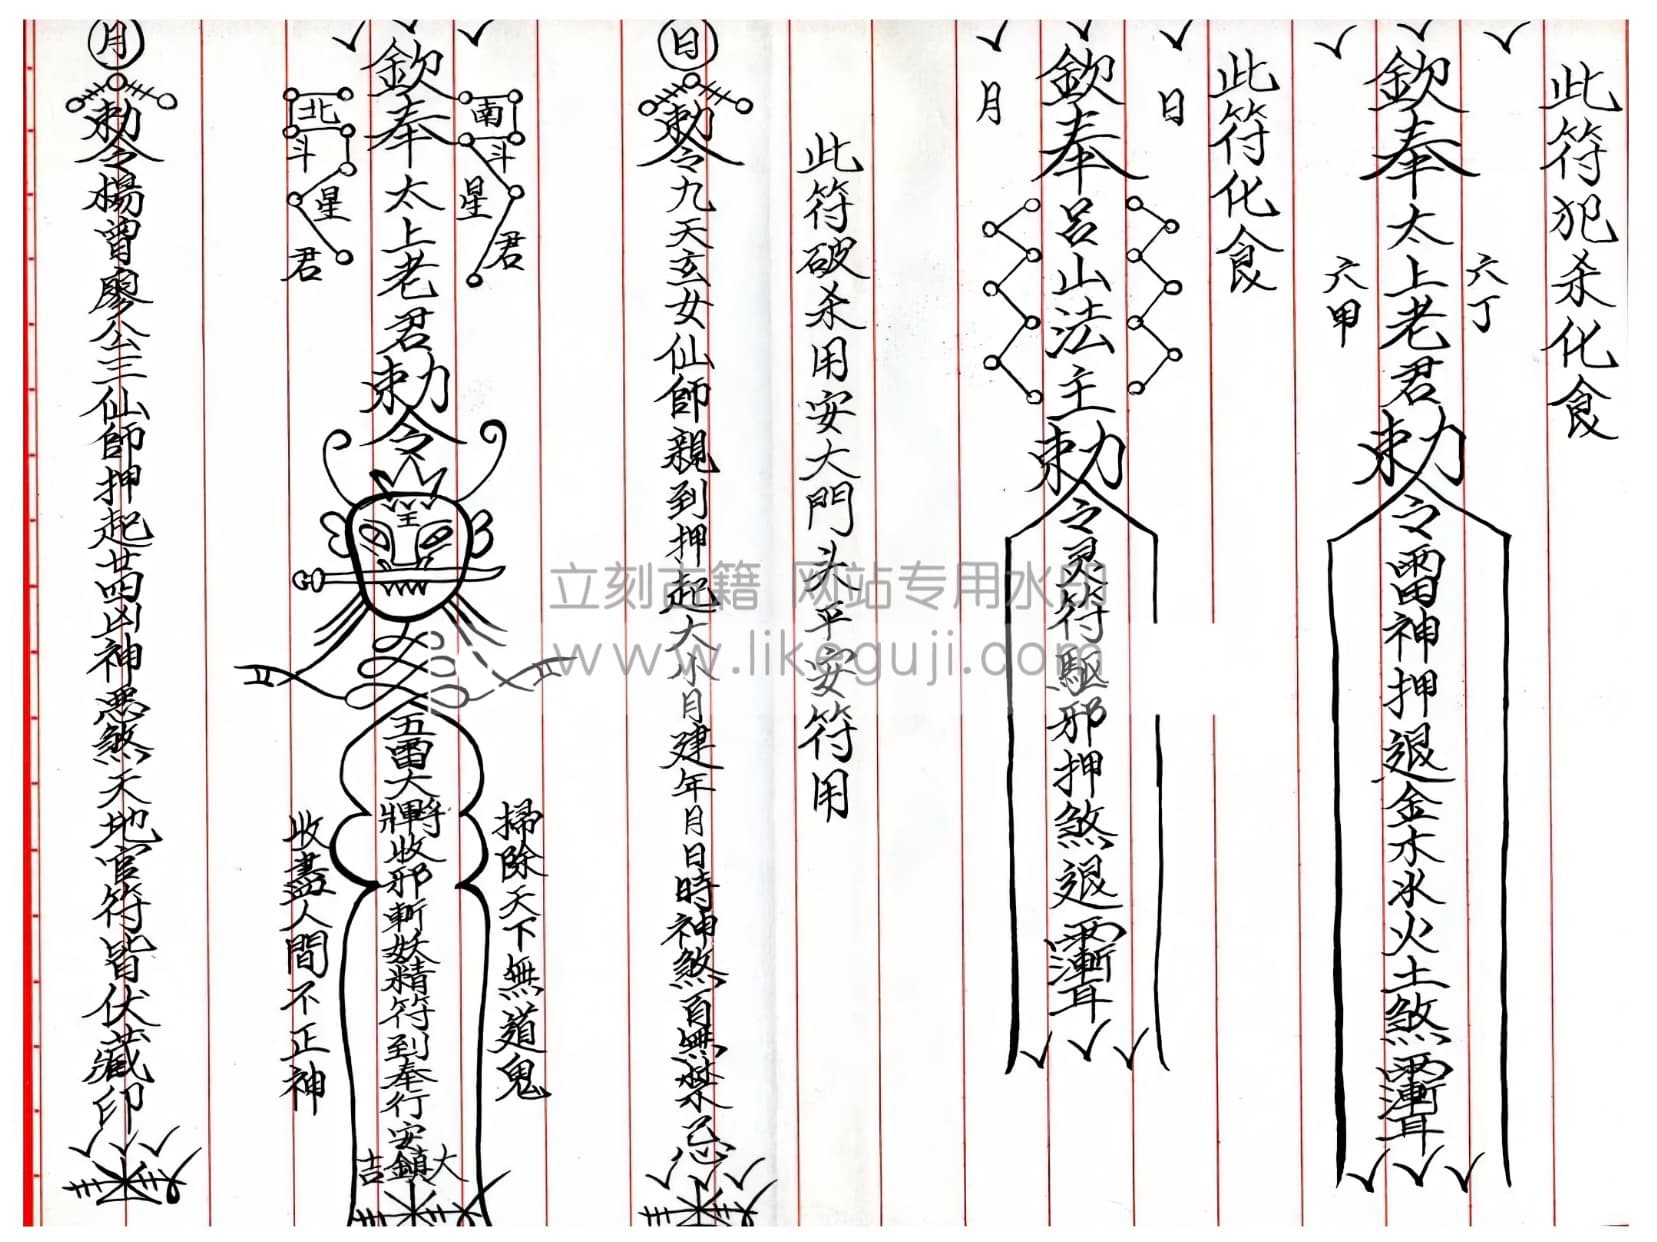 此符犯杀化食
六丁
欽奉太上老君勅令雷神押退金木水火土煞
六甲
此符化食
日
欽奉呂山法主勅令灵符驅邪押煞退
月
此符破杀用安大門头平安符用
日
勅令九天玄女仙師親到押起大小月建年月日時神煞百無禁忌
南斗星君
掃除天下無道鬼
欽奉太上老君勅令
五雷大將收邪斬妖精符到奉行安鎮大吉
北斗星君
收盡人間不正神
月
勅令楊曾廖公三仙師押起廿四凶神惡煞天地官符皆伏藏印
立刻古籍 网站专用水印
www.likeguji.com